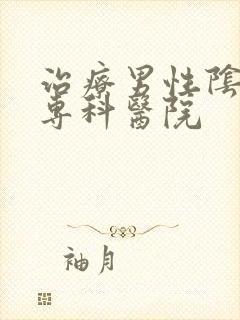 治療男性陰
專科醫院
袖月